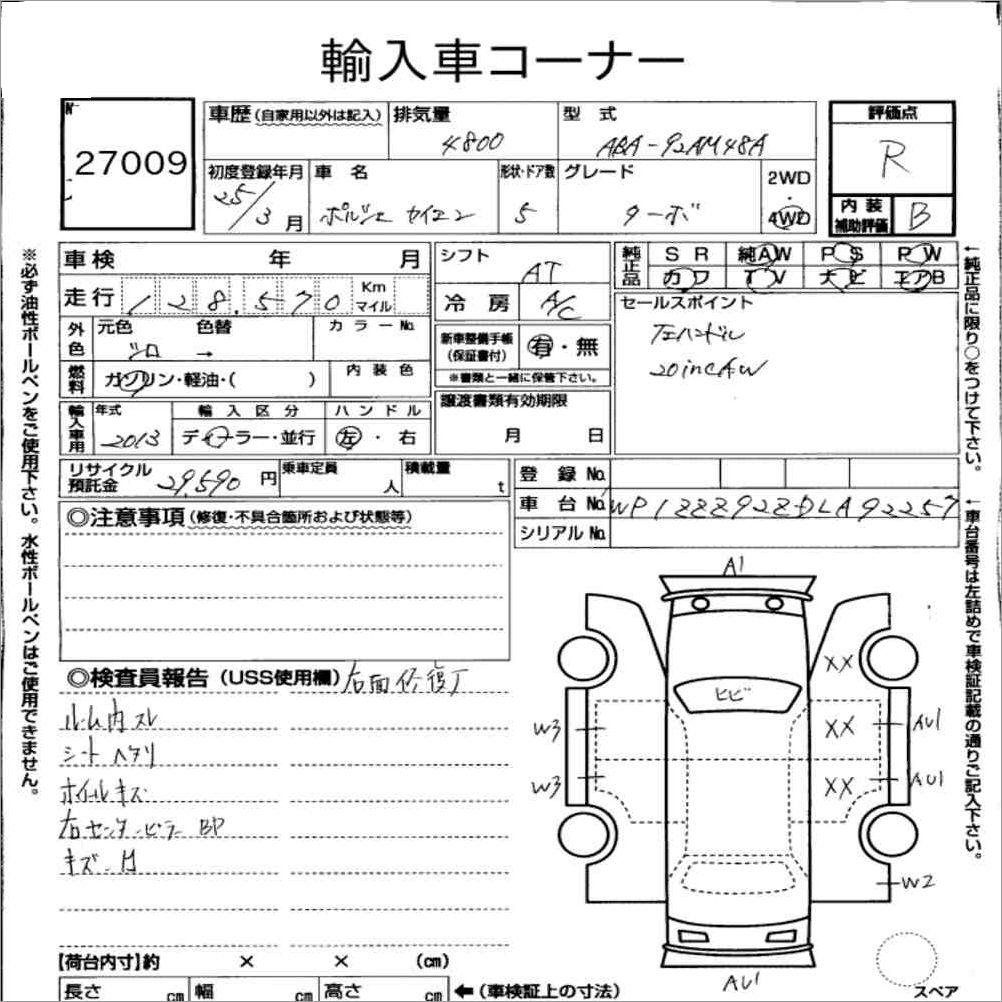 輸入車コーナー
№
27009
車歴 (自家用以外は記入)
排気量
4800
型 式
ABA-92AM48A
評価点
R
初度登録年月
25/3月
車 名
ポルシェ カイエン
形状・ドア数
5
グレード
ターボ
2WD
・
4WD
内装
補助評価
B
※必ず油性ボールペンをご使用下さい。水性ボールペンはご使用できません。
車検 年 月
走行 128,570 Km マイル
外色
元色
シロ
色替
→
カラーNo.
燃料
ガソリン・軽油・( )
内装色
輸入車用
年式
2013
輸入区分
ディーラー・並行
ハンドル
左・右
リサイクル
預託金
29,590円
乗車定員
人
積載量
t
シフト
AT
冷房
A/C
新車整備手帳
(保証書付)
有・無
※書類と一緒に保管下さい。
譲渡書類有効期限
月 日
純正品
SR 純AW PS PW
カワ TV ナビ エアB
セールスポイント
左ハンドル
20incAW
←純正品に限り○をつけて下さい。
登録No.
車台No. WP1ZZZ92ZDLA92257
シリアルNo.
←車台番号は左詰めで車検証記載の通りご記入下さい。
◎注意事項 (修復・不具合箇所および状態等)
◎検査員報告 (USS使用欄) 右面修復了
ルーム内スレ
シートヘタリ
ホイールキズ
右センターピラー BP
キズ・凹
A1
XX
ヒビ
W3
XX
AU1
W3
XX
AU1
W2
AU1
スペア
【荷台内寸】約 × × (cm)
長さ cm 幅 cm 高さ cm ←(車検証上の寸法)